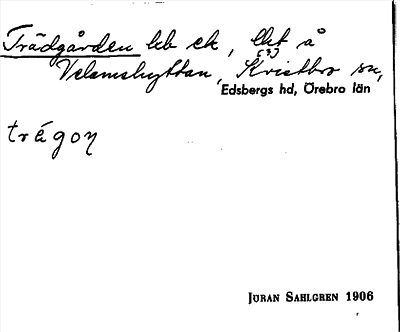 Trädgården lb ek, lht å
(?)
Velamshyttan, Kvistbro sn,
Edsbergs hd, Örebro län
trǽgoη
JÖRAN SAHLGREN 1906